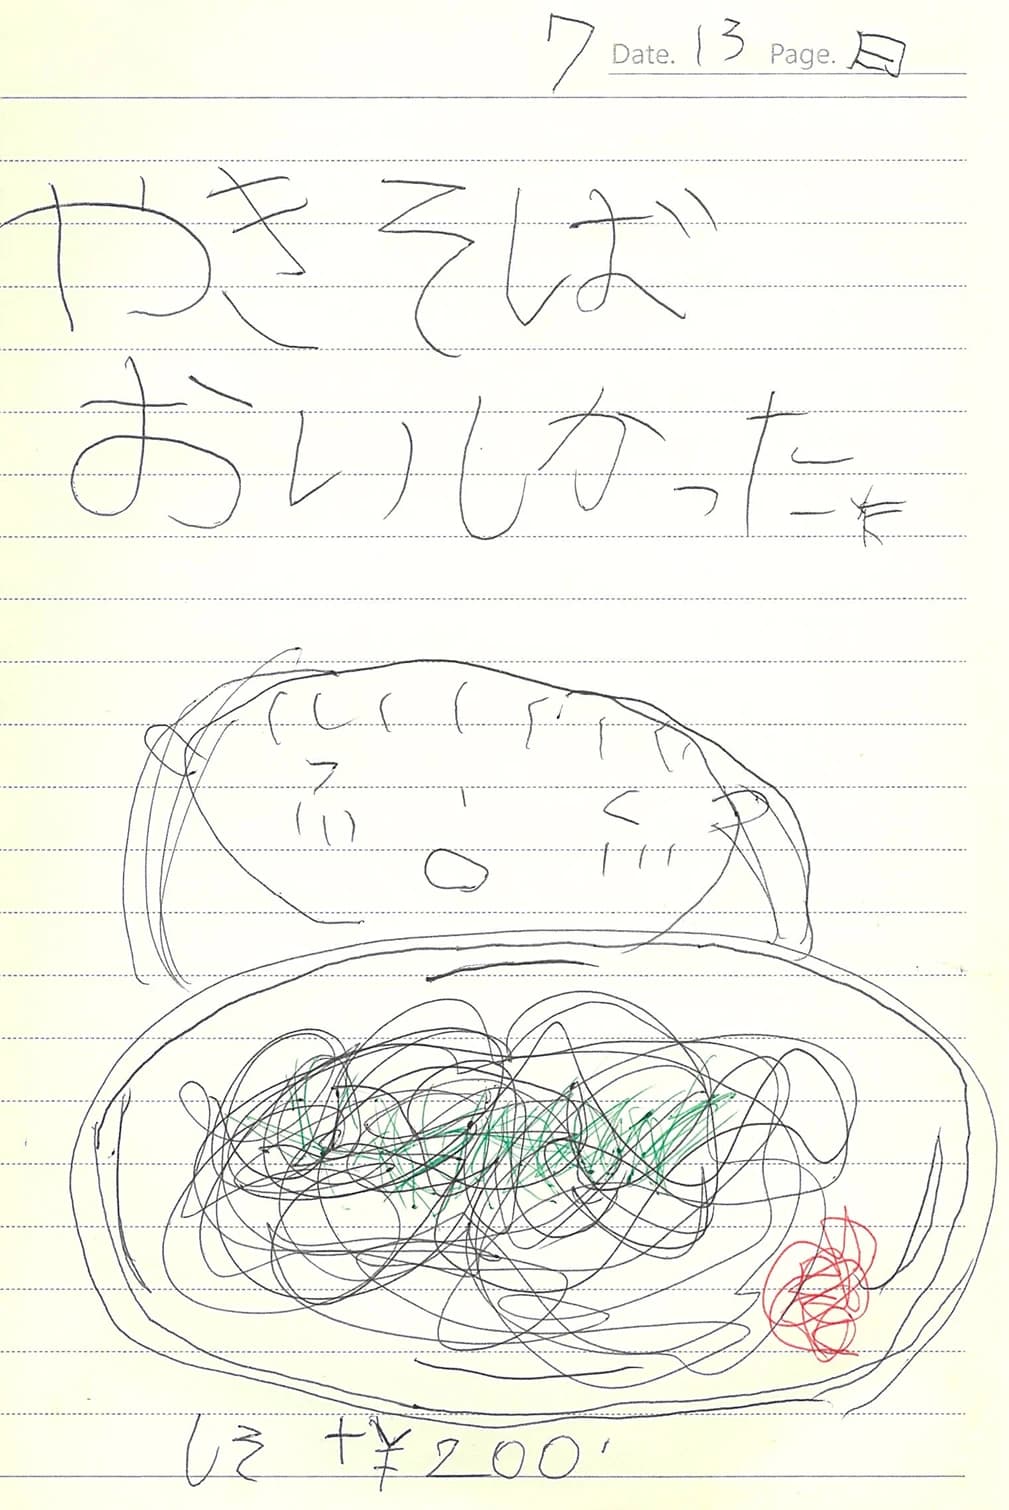 7 Date. 13 Page. 日
やきそば
おいしかった
しそ +¥200